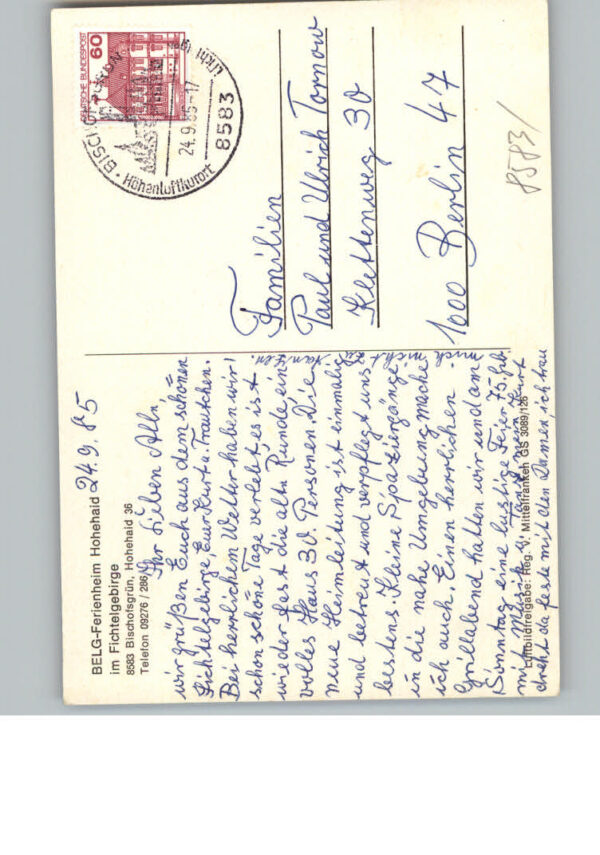 BELG-Ferienheim Hohehaid
im Fichtelgebirge
8583 Bischofsgrün, Hohehaid 36
Telefon 09276 / 286
24.9.85
Ihr Lieben Alln,
wir grüßen Euch aus dem schönen
Fichtelgebirge, Eure Kurt u. Trautchen.
Bei herrlichem Wetter haben wir
schon schöne Tage verlebt es ist
wieder fast die alte Runde ein
volles Haus 30. Personen. Die
neue Heimleitung ist einmalig
und betreut und verpflegt uns
bestens. Kleine Spaziergänge
in die nahe Umgebung mache
ich auch. Einen herrlichen
Grillabend hatten wir und am
Sonntag eine lustige Feier 75. Geb.
mit Musik u. Tanz mein Kurt
dreht da feste mit den Damen, ich trau
mich nicht zu
tanzen.
Luftbildfreigabe: Reg. v. Mittelfranken GS 3089/126
DEUTSCHE BUNDESPOST
60
BISCHOFSGRÜN
24.9.85-17
8583
Höhenluftkurort
Familien
Paul und Ulrich Tornow
Klettenweg 30
1000 Berlin 47
8583/